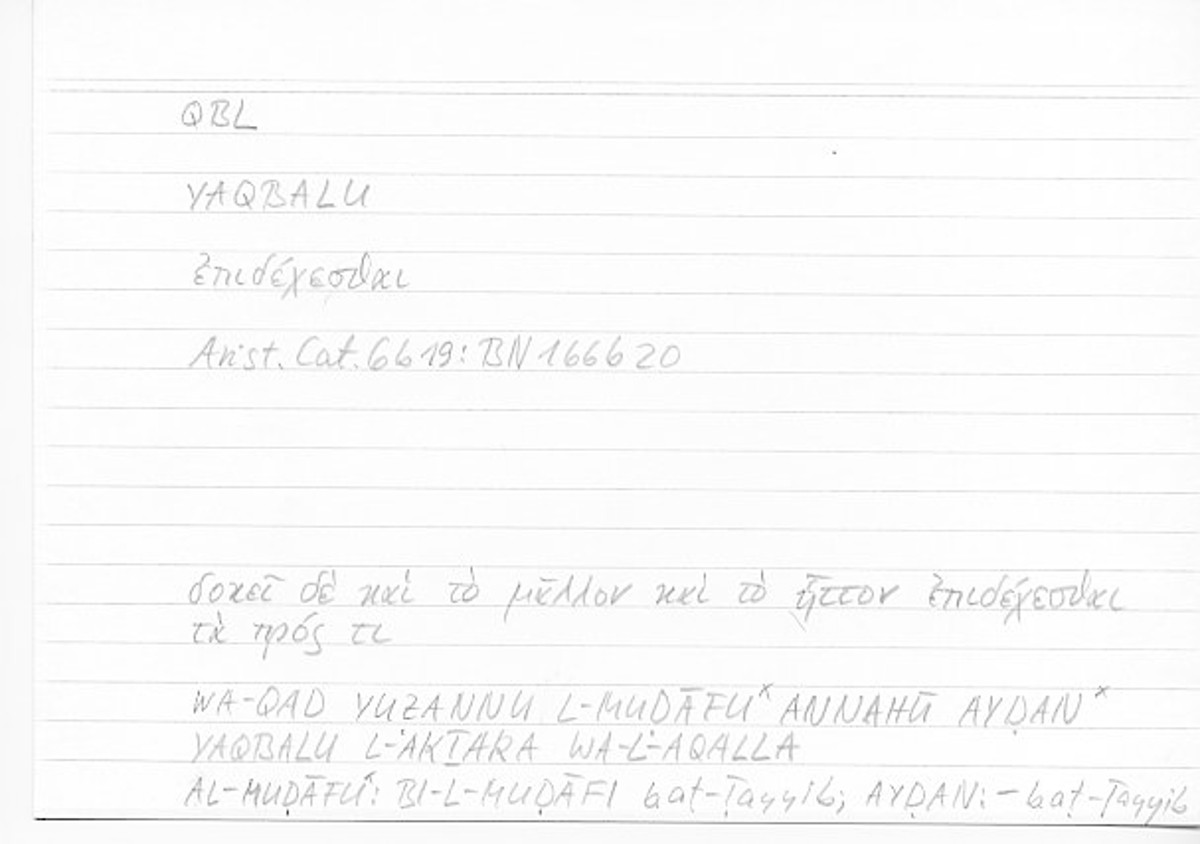 QBL
YAQBALU
ἐπιδέχεσθαι
Arist. Cat. 6b19: BN 166b20
δοκεῖ δὲ καὶ τὸ μᾶλλον καὶ τὸ ἧττον ἐπιδέχεσθαι
τὰ πρός τι
WA-QAD YUẒANNU L-MUḌĀFUˣ ANNAHŪ AYḌANˣ
YAQBALU L-ʾAKṮARA WA-L-ʾAQALLA
AL-MUḌĀFU: BI-L-MUḌĀFI baṭ-Ṭayyib; AYḌAN: – baṭ-Ṭayyib